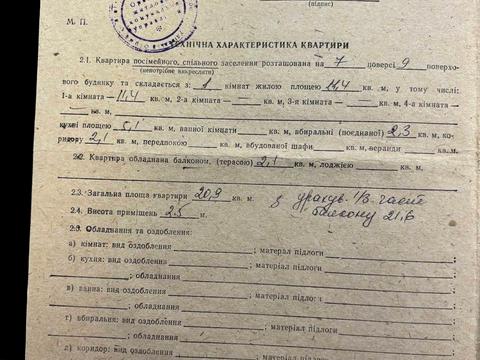 (підпис)
М. П.
ТЕХНІЧНА ХАРАКТЕРИСТИКА КВАРТИРИ
2.1. Квартира посімейного, спільного заселення розташована на 7 поверсі 9 поверхо-
(непотрібне викреслити)
вого будинку та складається з: 1 кімнат жилою площею 11,4 кв. м, у тому числі:
1-а кімната — 11,4 кв. м, 2-а кімната — кв. м, 3-я кімната — кв. м, 4-а кімната —
— кв. м,
кухні площею 5,1 кв. м, ванної кімнати кв. м, вбиральні (поєднаної) 2,3 кв. м, ко-
ридору 2,1 кв. м, передпокою — кв. м, вбудованої шафи кв. м, веранди кв. м.
2.2. Квартира обладнана балконом, (терасою) 2,1 кв. м, лоджією кв. м.
2.3. Загальна площа квартири 20,9 кв. м. з урахув. 1/3 част
2.4. Висота приміщень 2.5 м. балкону 21,6
2.5. Обладнання та оздоблення:
а) кімнат: вид оздоблення ; матеріал підлоги
б) кухня: вид оздоблення ; матеріал підлоги
; обладнання
в) ванна: вид оздоблення ; матеріал підлоги
; обладнання
г) вбиральня: вид оздоблення ; матеріал підлоги
; обладнання
д) коридор: вид оздоблення ; матеріал підлоги